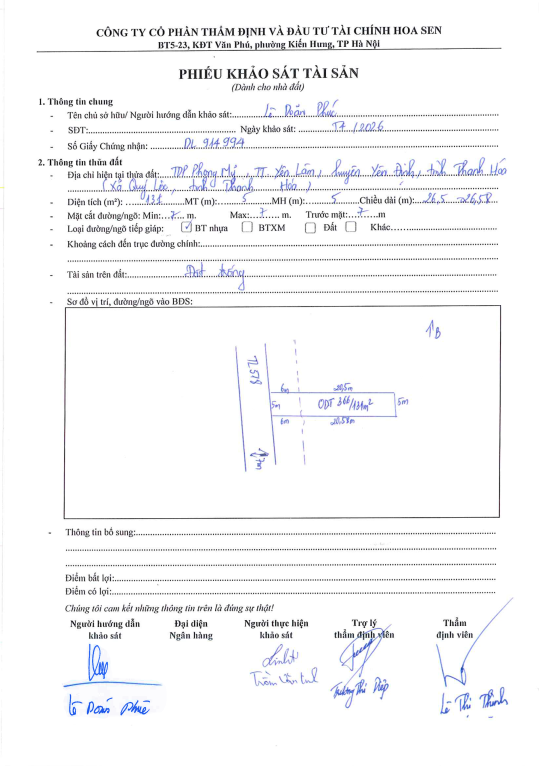 CÔNG TY CỔ PHẦN THẨM ĐỊNH VÀ ĐẦU TƯ TÀI CHÍNH HOA SEN
BT5-23, KĐT Văn Phú, phường Kiến Hưng, TP Hà Nội
PHIẾU KHẢO SÁT TÀI SẢN
(Dành cho nhà đất)
1. Thông tin chung
- Tên chủ sở hữu/ Người hướng dẫn khảo sát: Lê Doãn Phúc
- SĐT: Ngày khảo sát: /2026
- Số Giấy Chứng nhận: DL 914994
2. Thông tin thửa đất
- Địa chỉ hiện tại thửa đất: TDP Phong Mỹ, TT. Yên Lâm, huyện Yên Định, tỉnh Thanh Hóa
(Xã Quý Lộc, tỉnh Thanh Hóa)
- Diện tích (m²): 131 MT (m): 5 MH (m): 5 Chiều dài (m): 26,5 - 26,58
- Mặt cắt đường/ngõ: Min: 7 m. Max: 7 m. Trước mặt: 7 m
- Loại đường/ngõ tiếp giáp: ☑ BT nhựa ☐ BTXM ☐ Đất ☐ Khác
- Khoảng cách đến trục đường chính:
- Tài sản trên đất: Đất trống
- Sơ đồ vị trí, đường/ngõ vào BĐS:
B
TL 518
6m 20,5m
5m ODT 366/131m² 5m
6m 20,58m
7m
- Thông tin bổ sung:
Điểm bất lợi:
Điểm có lợi:
Chúng tôi cam kết những thông tin trên là đúng sự thật!
Người hướng dẫn khảo sát
Đại diện Ngân hàng
Người thực hiện khảo sát
Trợ lý thẩm định viên
Thẩm định viên
Lê Doãn Phúc
Trần Văn
Trương Thị Diệp
Lê Thị Thành